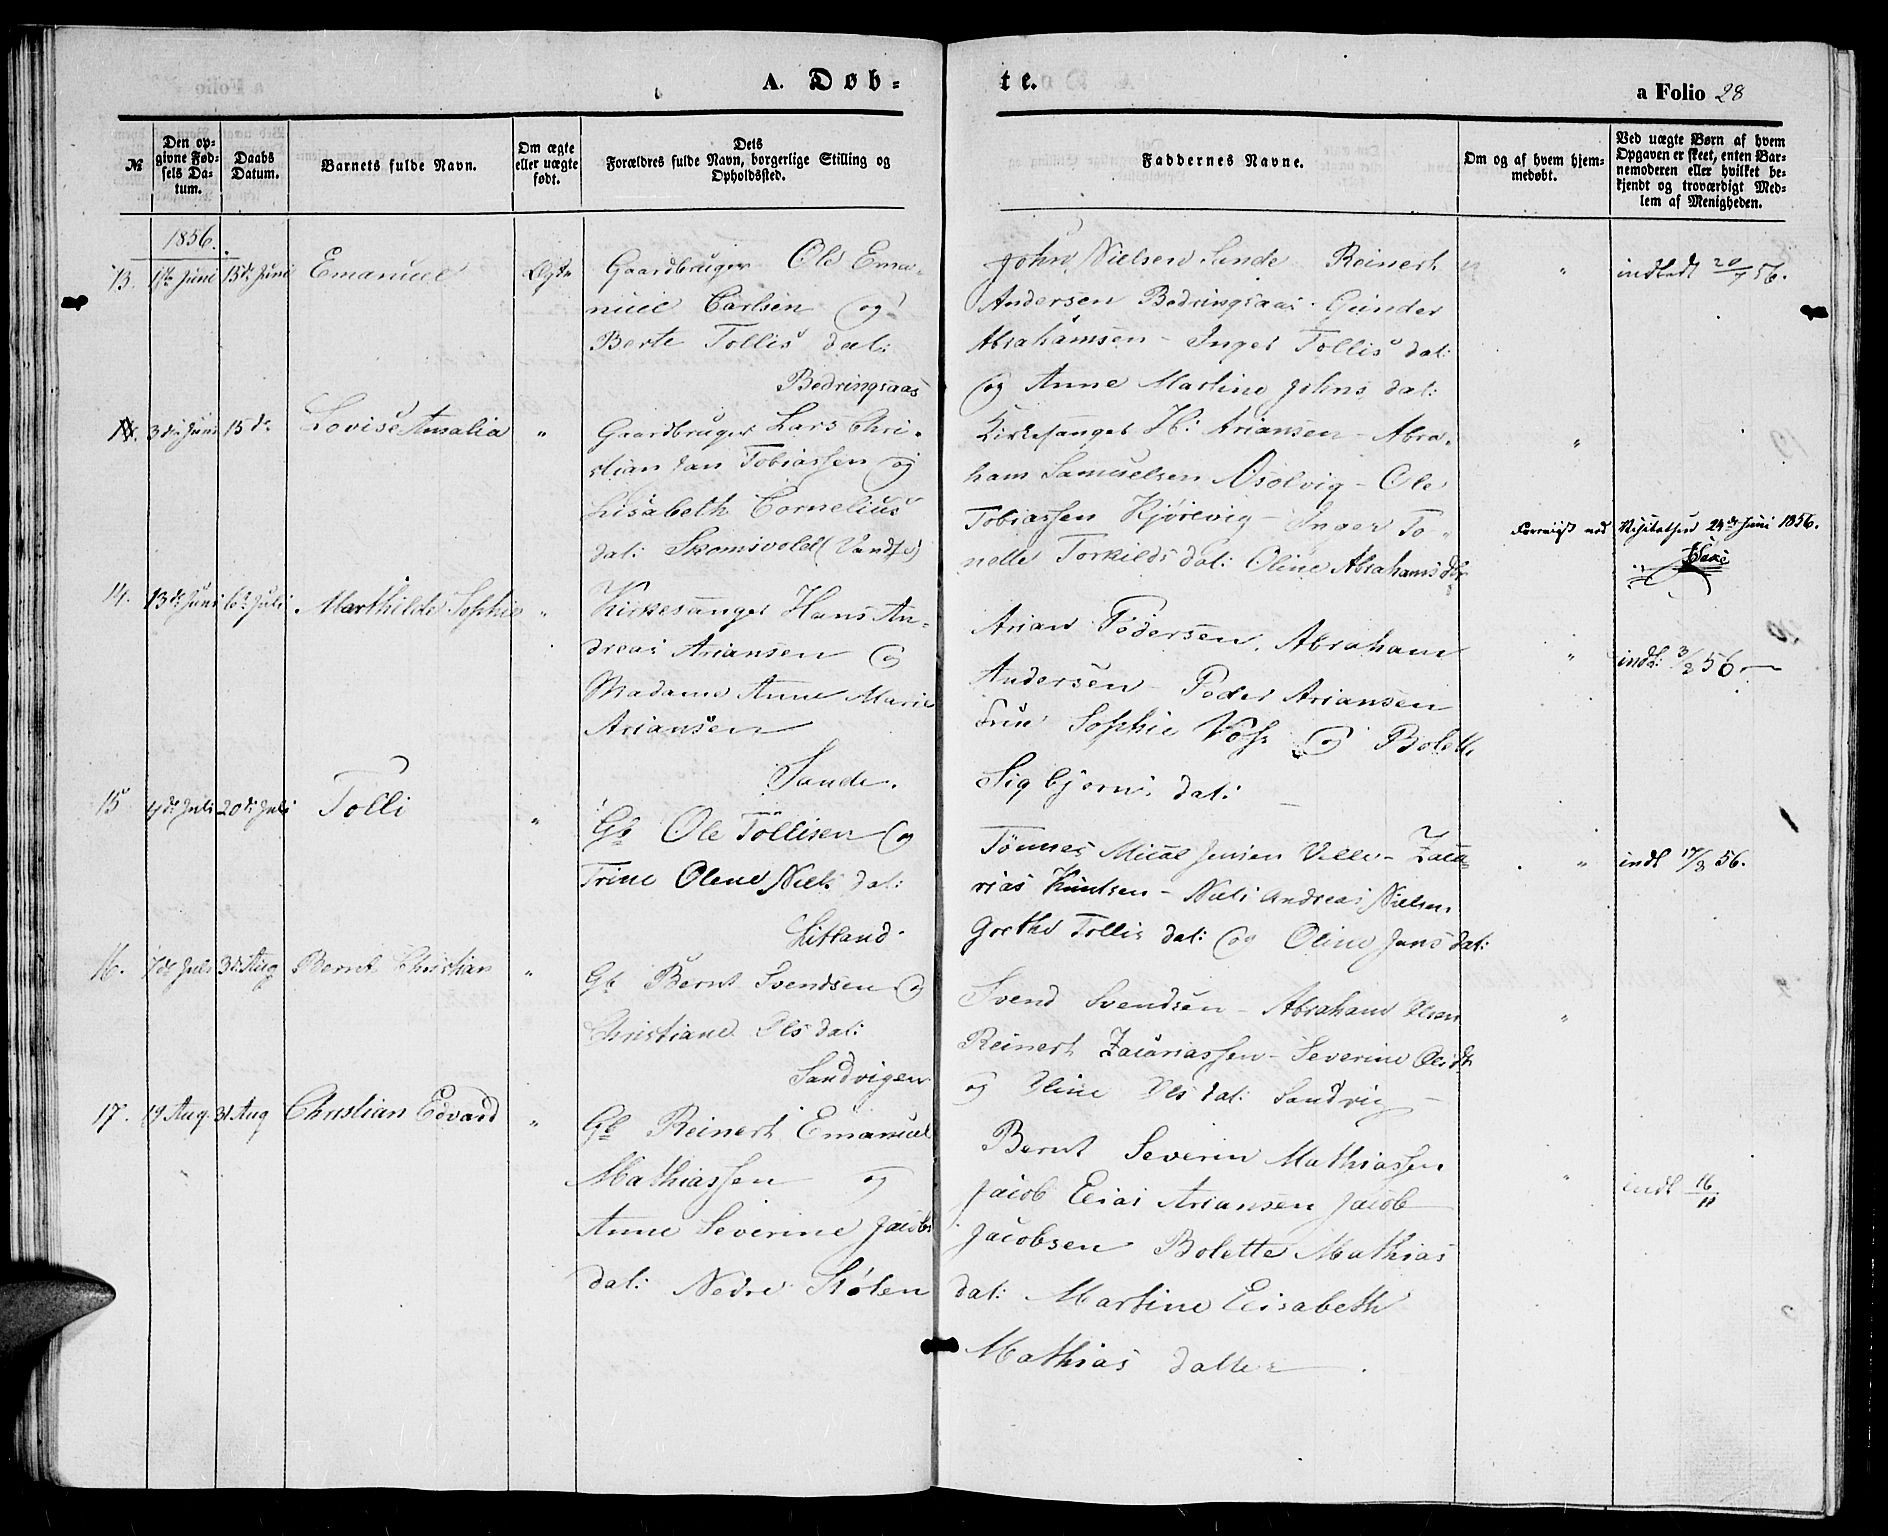 A. Døb=
te.
a Folio 28
№
Den op=
givne Fød=
sels Da=
tum.
Daabs
Datum.
Barnets fulde Navn.
Om ægte
eller uægte
født.
Dets
Forældres fulde Navn, borgerlige Stilling og
Opholdssted.
Faddernes Navne.
Om og af hvem hjem=
medøbt.
Ved uægte Børn af hvem
Opgaven er skeet, enten Bar=
nemoderen eller hvilket be=
kjendt og troværdigt Med=
lem af Menigheden.
1856.
13. 1ste Juni 15de Juni Emanuel Ægte
Gaardbruger Ole Ema-
nuel Carlsen og
Berte Tollis dat:
Bedringsaas
John Nielsen Sunde Reinert
Andersen Bedringsaas - Gunder
Abrahamsen - Inger Tollis dat:
og Anne Martine Johns dat:
" indledt 20/7 56.
3de Juni 15de Lovise Amalia "
Gaardbruger Lars Chri-
stian Jan Tobiassen og
Lisabeth Cornelius
dat: Skomsvold
Kirkesanger H: Ariansen - Abra-
ham Samuelsen Osolvig - Ole
Tobiassen Kjørevig - Inger To-
nelle Torkelds dat: Oline Abrahams dtr
"
Forevist ved Visitatsen 24de Juni 1856.
14. 13de Juni 6te Juli Marthilde Sophie "
Kirkesanger Hans An-
dreas Ariansen og
Madame Anne Marie
Ariansen
Sande.
Arian Pedersen, Abraham
Andersen - Peder Ariansen
Frue Sophie Voss og Bolette
Sigbjørns dat:
" indl: 3/8 56
15 4de Juli 20de Juli Tolli "
Gb Ole Tollisen og
Trine Olene Niels dat:
Litland
Tønnes Mical Jensen Velle - Zaca
rias Knutsen - Niels Andreas Nielsen
Grethe Tollis dat: og Oline Jens dat:
" indl 17/8 56.
16. 7de Juli 3de Aug Bernt Christian "
Gb Bernt Svendsen og
Christiane Ols dat:
Sandvigen
Svend Svendsen - Abraham Olsen
Reinert Zacariassen - Severine Ols dtr
og Oline Ols dat: Sandvig
"
17. 19 Aug. 31 Aug Christian Edvard "
Gb Reinert Emanuel
Mathiassen og
Anne Severine Jacobs
dat: Nedre Stølen
Bernt Severin Mathiassen
Jacob Elias Ariansen Jacob
Jacobsen Bolette Mathias
dat: Martine Elisabeth
Mathias datter
" indl 16/11